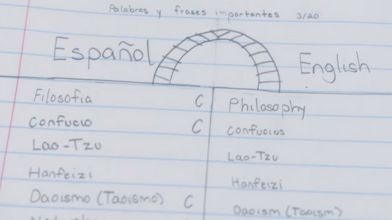 Palabras y frases importantes 3/20
Español English
Filosofia C Philosophy
Confucio C Confucius
Lao-Tzu Lao-Tzu
Hanfeizi Hanfeizi
Daoismo (Taoismo) C Daoism (Taoism)